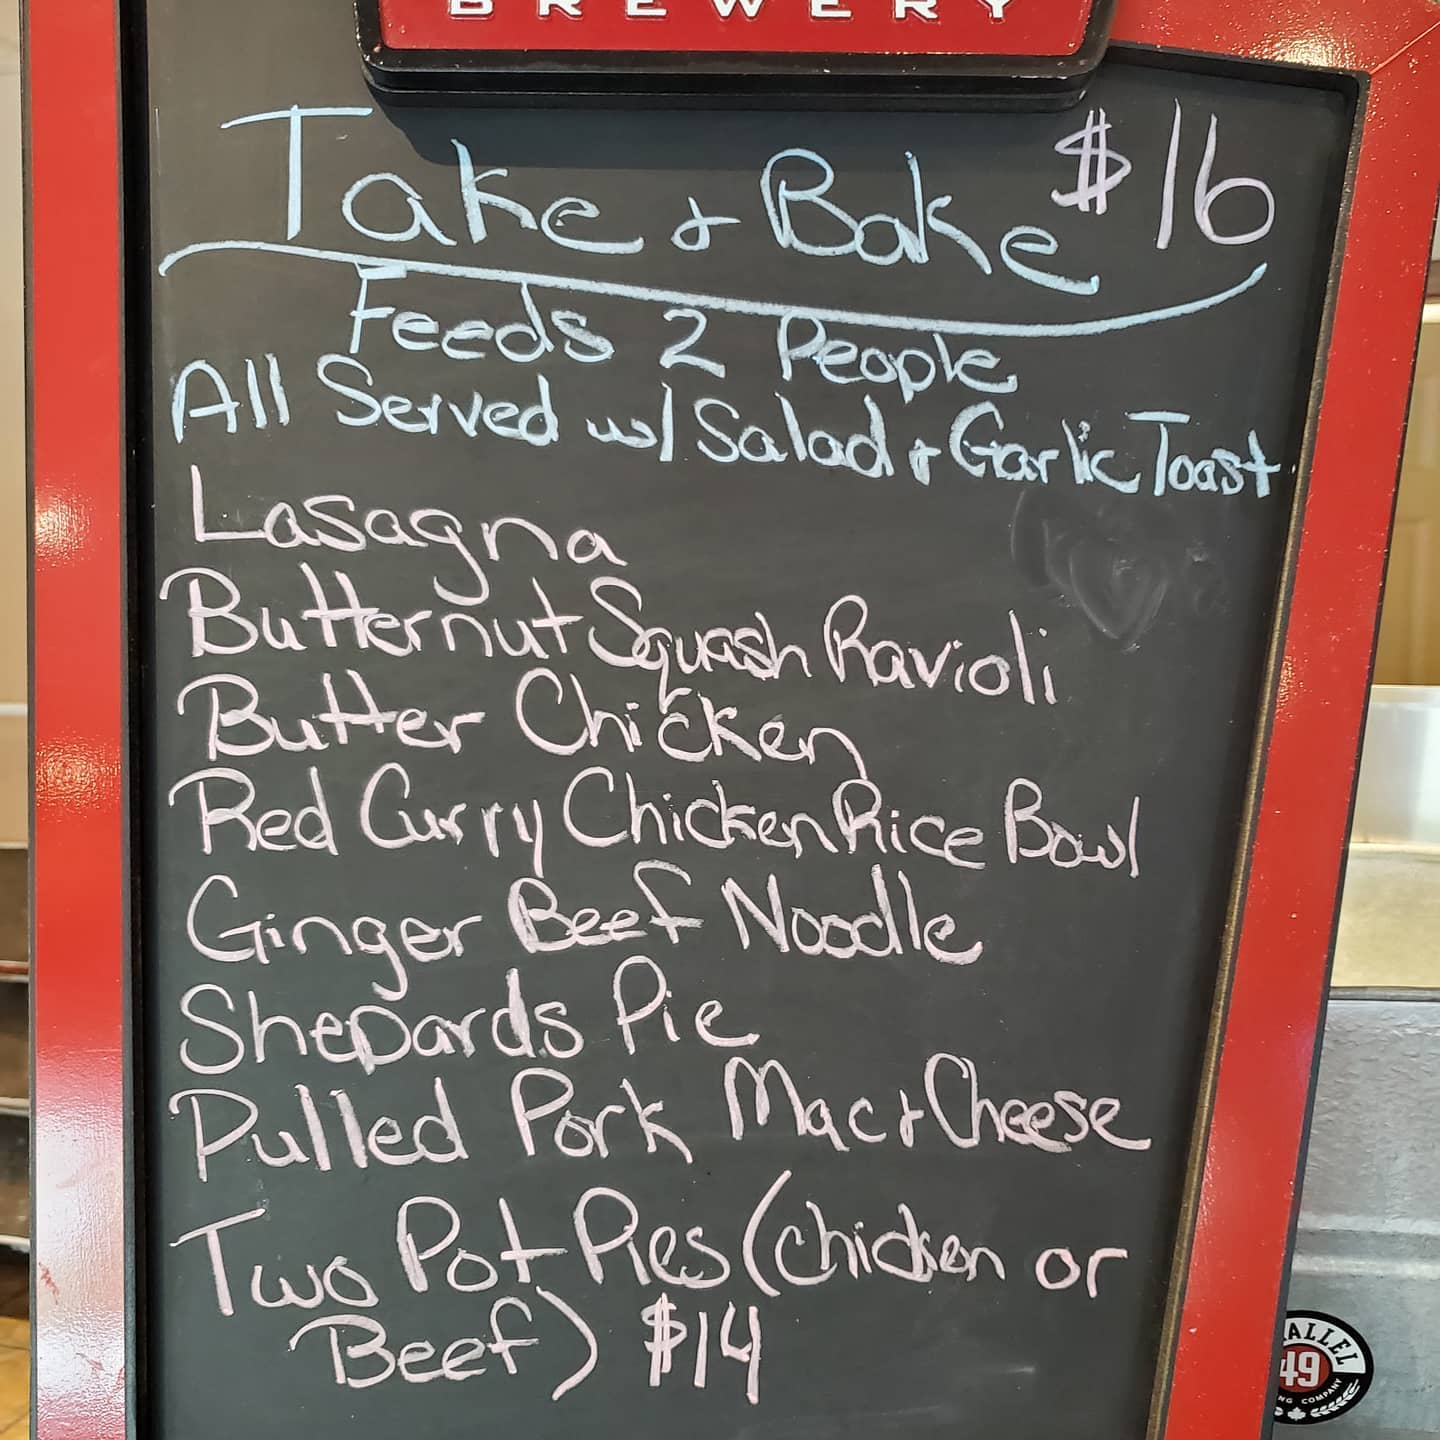 BREWERY
Take & Bake $16
Feeds 2 People
All Served w/ Salad & Garlic Toast
Lasagna
Butternut Squash Ravioli
Butter Chicken
Red Curry Chicken Rice Bowl
Ginger Beef Noodle
Shepards Pie
Pulled Pork Mac & Cheese
Two Pot Pies (chicken or
Beef) $14
ALLEL
49
NG COMPANY